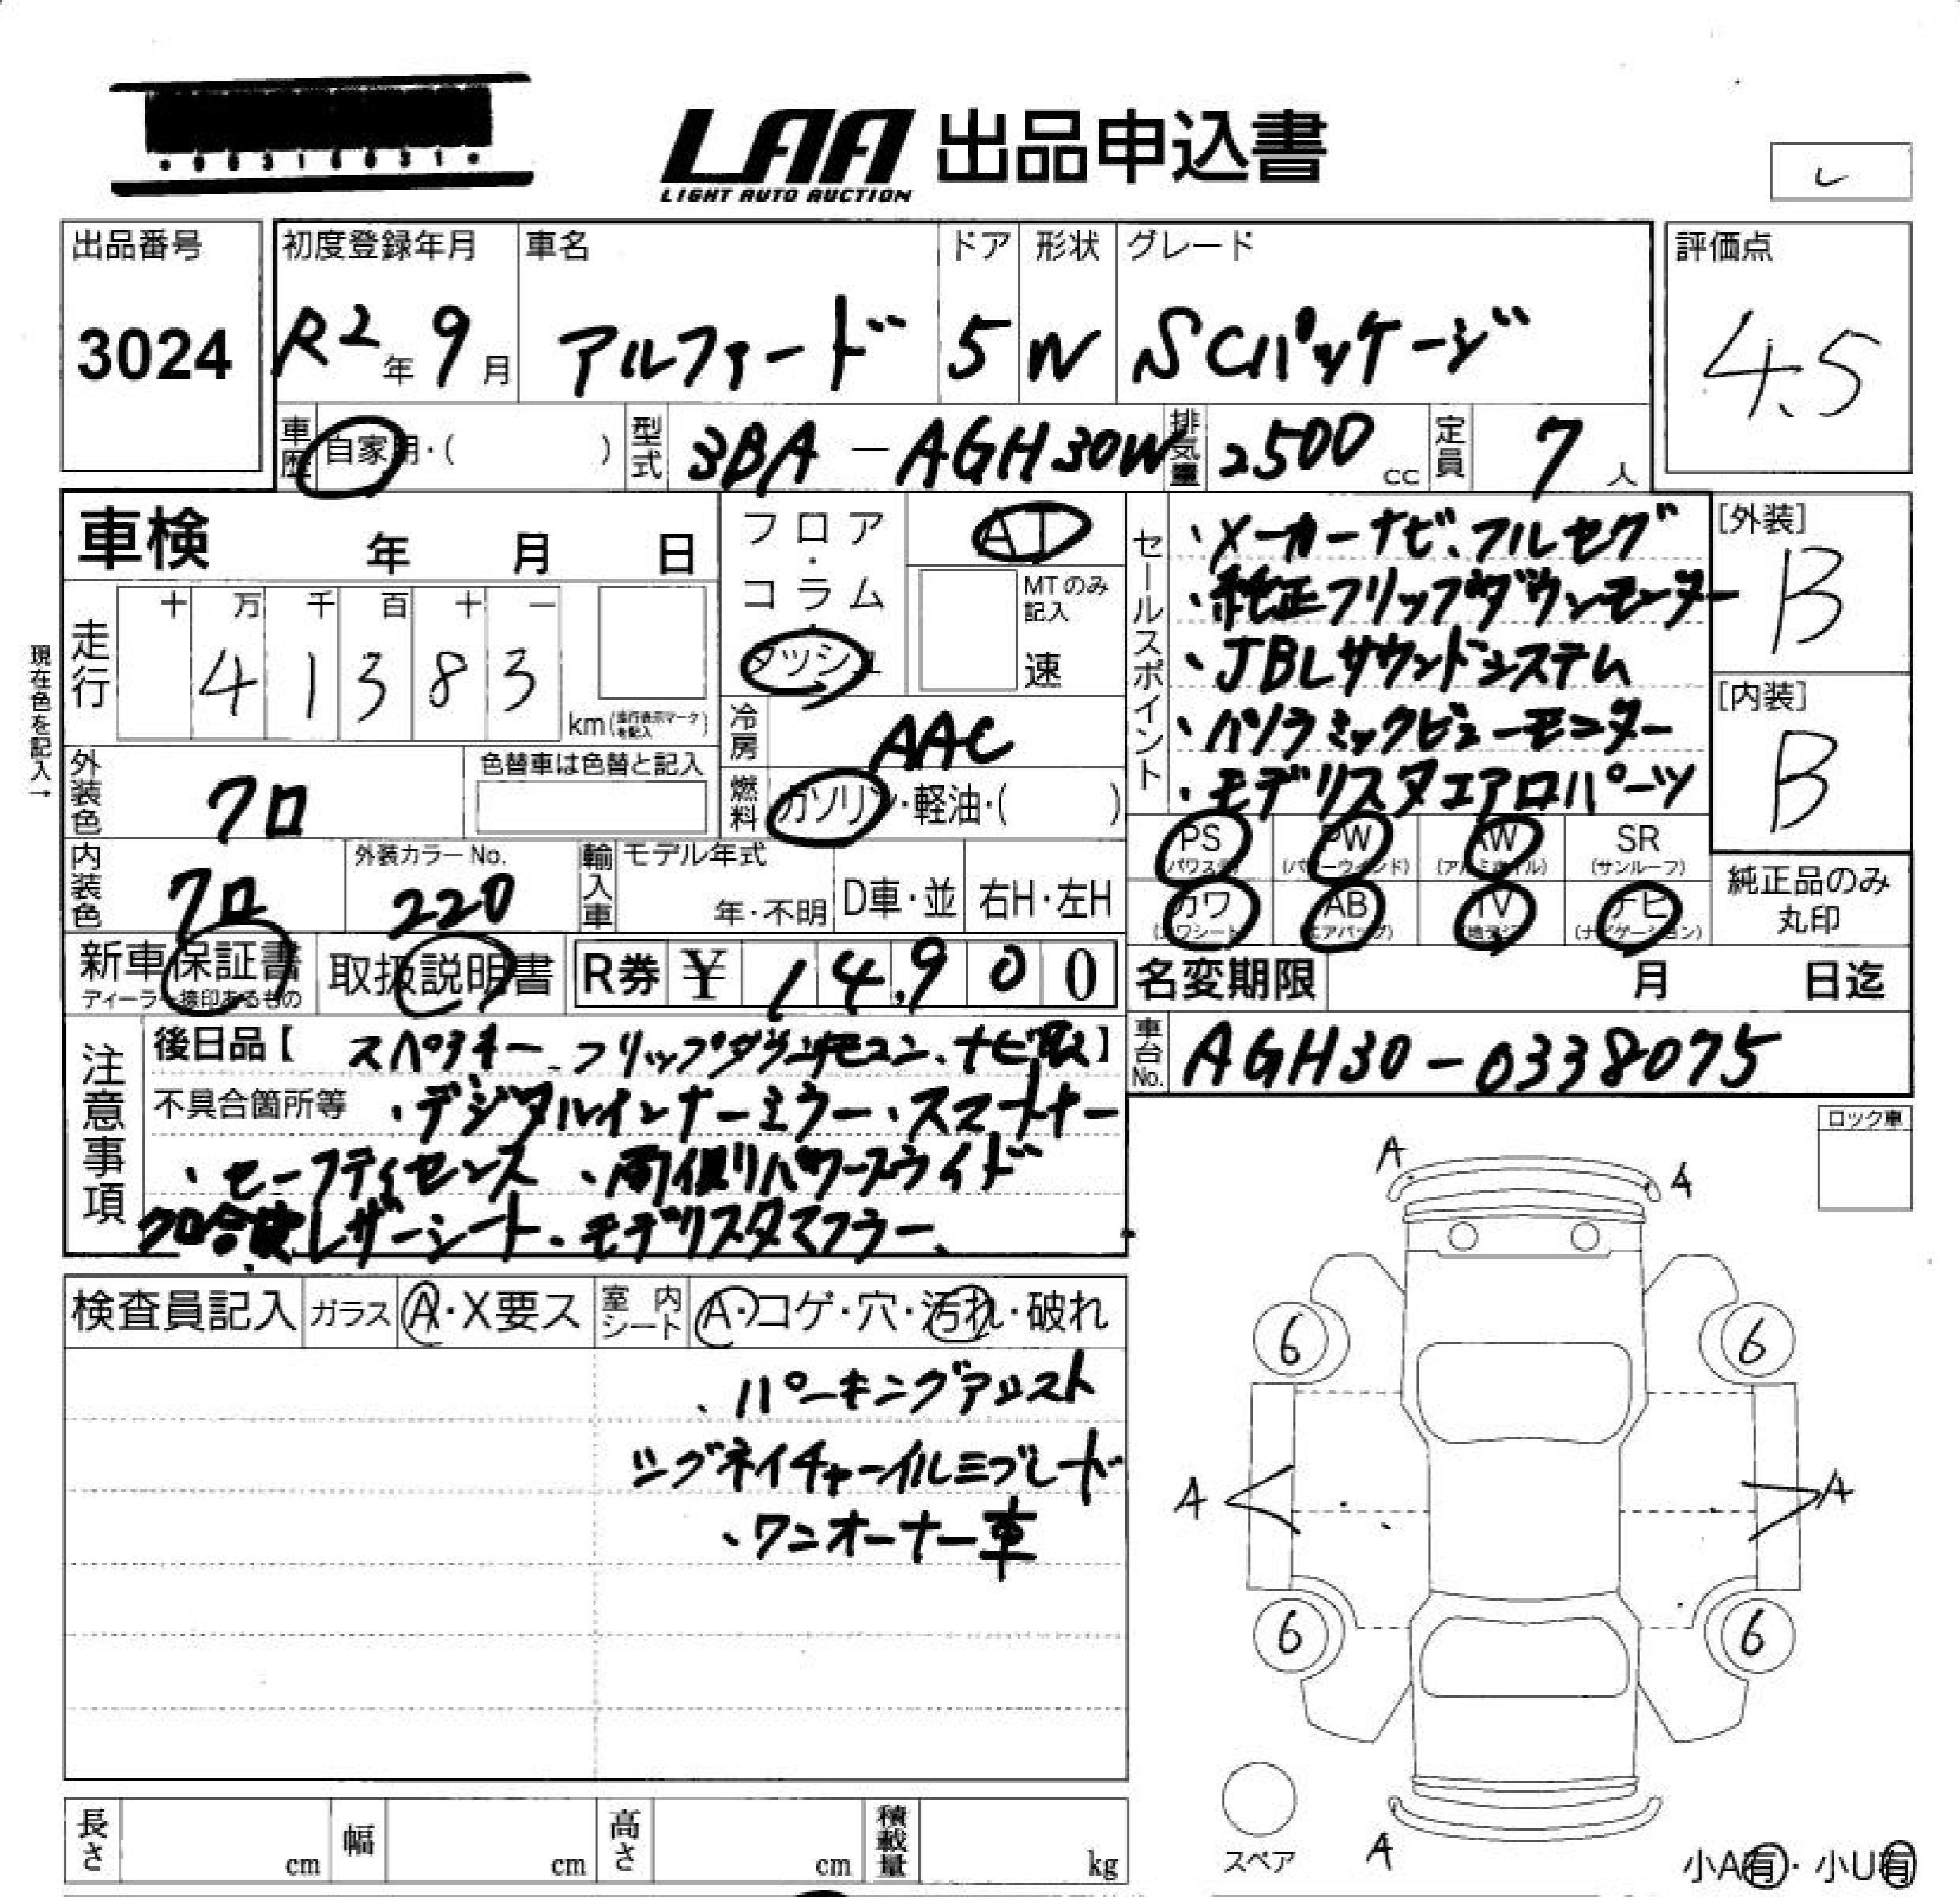 LAA 出品申込書
LIGHT AUTO AUCTION
出品番号
3024
初度登録年月
R2年 9月
車名
アルファード
ドア
5
形状
W
グレード
SCパッケージ
評価点
4.5
車歴 自家用・( )
型式 3BA-AGH30W
排気量 2500 cc
定員 7人
車検 年 月 日
フロア・コラム・ダッシュ
AT
MTのみ記入
速
現在色を記入→
走行
十 万 千 百 十 一
4 1 3 8 3
km(走行表示マークを記入)
冷房 AAC
燃料 ガソリン・軽油・( )
外装色 クロ
色替車は色替と記入
内装色 クロ
外装カラーNo.
220
輸入車 モデル年式
年・不明 D車・並 右H・左H
新車保証書
ディーラー捺印あるもの
取扱説明書
R券 ¥ 14,900
セールスポイント
・メーカーナビ、フルセグ
・純正フリップダウンモニター
・JBLサウンドシステム
・パノラミックビューモニター
・モデリスタエアロパーツ
[外装]
B
[内装]
B
PS (パワステ)
PW (パワーウインド)
AW (アルミホイル)
SR (サンルーフ)
カワ (カワシート)
AB (エアバッグ)
TV
ナビ (ナビゲーション)
純正品のみ丸印
名変期限 月 日迄
車台No. AGH30-0338075
注意事項
後日品【 スペアキー、フリップダウンリモコン、ナビ取 】
不具合箇所等 ・デジタルインナーミラー・スマートキー
・セーフティセンス ・両側パワースライド
クロ合皮レザーシート・モデリスタマフラー、
検査員記入
ガラス A・X要ス
室内シート A・コゲ・穴・汚れ・破れ
、パーキングアシスト
シグネイチャーイルミブレード
、ワンオーナー車
長さ cm 幅 cm 高さ cm 積載量 kg
ロック車
A A
6 6
A A
6 6
A
スペア
小A有・小U有